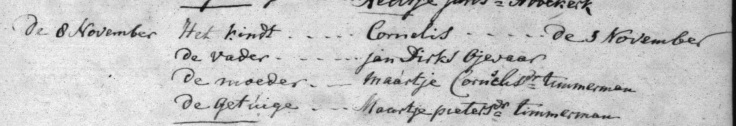 de 8 November Het kindt Cornelis de 3 November
de vader jan Dirks Ojevaar
de moeder maartje Cornelisdr timmerman
de getuige Maartje pietersdr timmerman